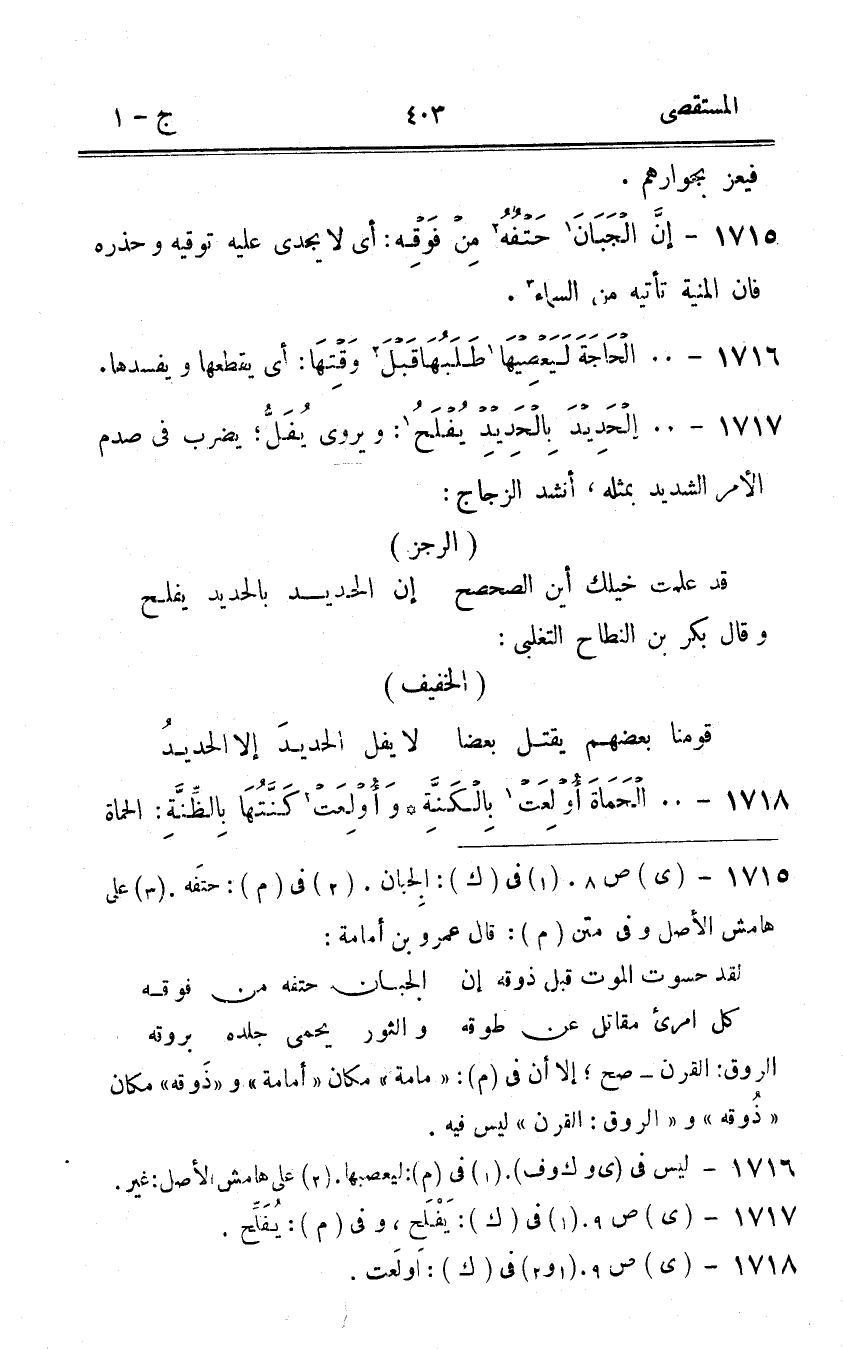 المستقصى ٤٠٣ ج – ١
فيعز بجوارهم .
١٧١٥ – إنَّ الْجَبَانَ١ حَتْفُهُ٢ مِنْ فَوْقِهِ : أى لا يجدى عليه توقيه و حذره
فان المنية تأتيه من السماء٣ .
١٧١٦ – ٠٠ الْحَاجَةَ لَيَعْصِيهَا١ طَلَبُهَا قَبْلَ٢ وَقْتِهَا : أى يقطعها و يفسدها.
١٧١٧ – ٠٠ الْحَدِيْدَ بِالْحَدِيْدِ يُفْلَحُ١ : و يروى يُفَلُّ ؛ يضرب فى صدم
الأمر الشديد بمثله ، أنشد الزجاج :
( الرجز )
قد علمت خيلك أين الصحصح إن الحديد بالحديد يفلح
و قال بكر بن النطاح التغلبى :
( الخفيف )
قومنا بعضهم يقتل بعضا لا يفل الحديدَ إلا الحديدُ
١٧١٨ – ٠٠ الْحَمَاةَ أُوْلِعَتْ١ بِالْكَنَّةِ * وَ أُوْلِعَتْ٢ كَنَّتُهَا بِالظِّنَّةِ : الحماة
١٧١٥ – ( ى ) ص ٨ . (١) فى ( ك ) : الجِبان . ( ٢ ) فى ( م ) : حتفَه . (٣) على
هامش الأصل و فى متن ( م ) : قال عمرو بن أمامة :
لقد حسوت الموت قبل ذوقه إن الجبان حتفه من فوقه
كل امرئ مقاتل عن طوقه و الثور يحمى جلده بروقه
الروق : القرن – صح ؛ إلا أن فى (م) : « مامة » مكان « أمامة » و «ذَوقه» مكان
« ذُوقه » و « الروق : القرن » ليس فيه .
١٧١٦ – ليس فى (ى و ك و ف). (١) فى (م): ليعصبها. (٢) على هامش الأصل: غير .
١٧١٧ – ( ى ) ص ٩. (١) فى ( ك ) : يَفْلَح ، و فى ( م ) : يُفَلِّح .
١٧١٨ – ( ى ) ص ٩. (١و٢) فى ( ك ) : اَولَعت .